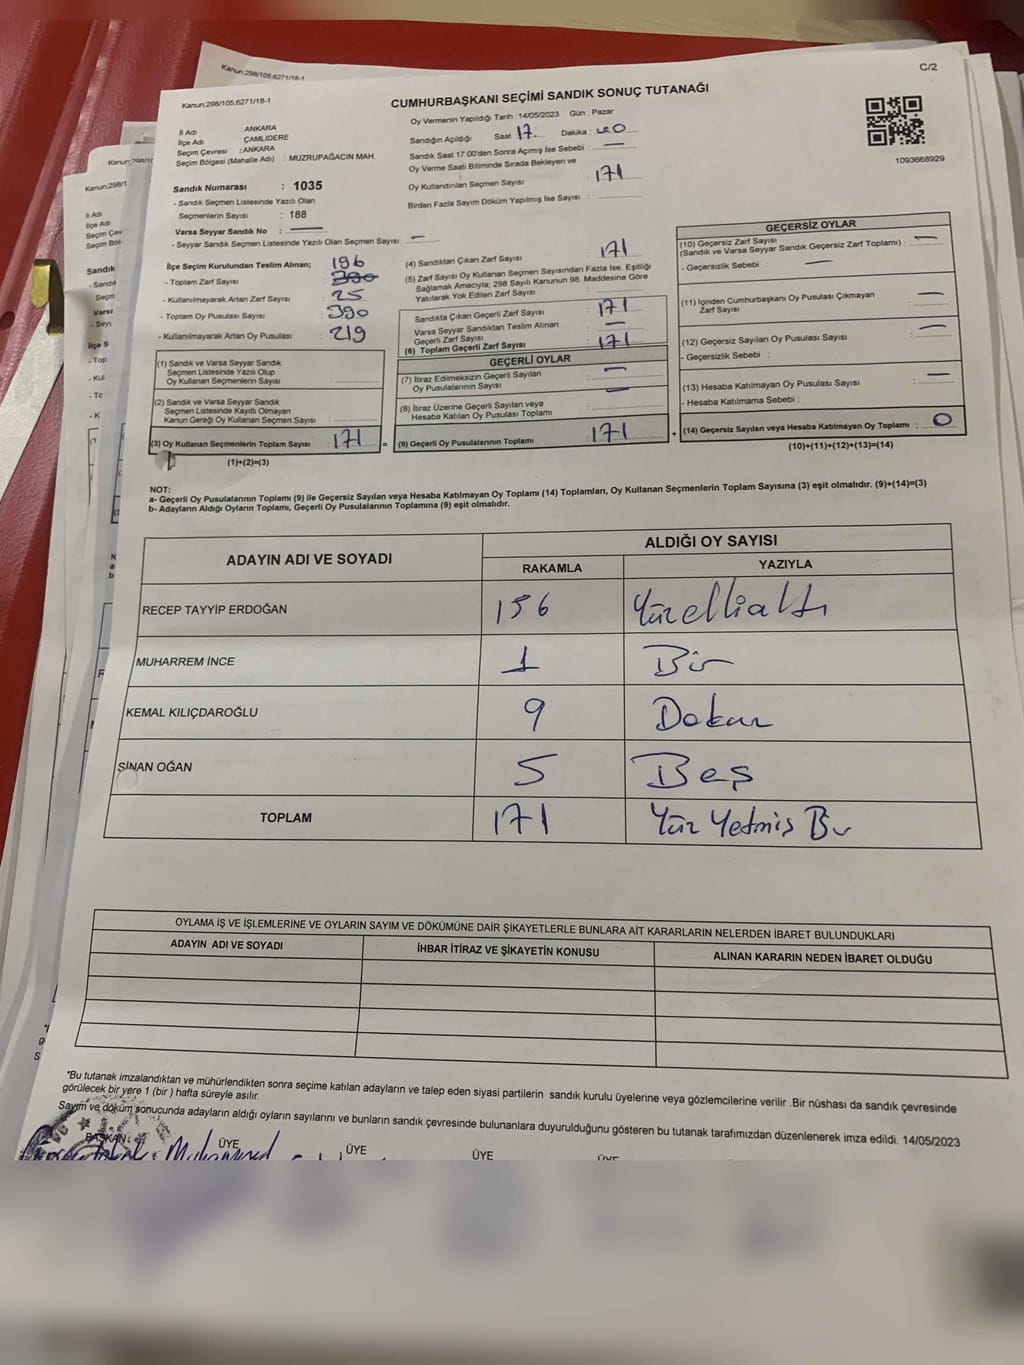 Kanun:298/105,6271/18-1
C/2
Kanun:298/105,6271/18-1
CUMHURBAŞKANI SEÇİMİ SANDIK SONUÇ TUTANAĞI
Oy Vermenin Yapıldığı Tarih :14/05/2023 Gün : Pazar
İl Adı : ANKARA
İlçe Adı : ÇAMLIDERE
Seçim Çevresi : ANKARA
Seçim Bölgesi (Mahalle Adı) : MUZRUPAĞACIN MAH.
Sandığın Açıldığı Saat 17 Dakika :
Sandık Saat 17:00'den Sonra Açmış İse Sebebi : —
Oy Verme Saati Bitiminde Sırada Bekleyen ve
Oy Kullandırılan Seçmen Sayısı : 171
Birden Fazla Sayım Döküm Yapılmış İse Sayısı :
1093668929
Sandık Numarası : 1035
- Sandık Seçmen Listesinde Yazılı Olan
Seçmenlerin Sayısı : 188
Varsa Seyyar Sandık No : —
- Seyyar Sandık Seçmen Listesinde Yazılı Olan Seçmen Sayısı: —
İlçe Seçim Kurulundan Teslim Alınan;
196
- Toplam Zarf Sayısı : 390
- Kullanılmayarak Artan Zarf Sayısı : 25
- Toplam Oy Pusulası Sayısı : 390
- Kullanılmayarak Artan Oy Pusulası : 219
(1) Sandık ve Varsa Seyyar Sandık
Seçmen Listesinde Yazılı Olup
Oy Kullanan Seçmenlerin Sayısı :
(2) Sandık ve Varsa Seyyar Sandık
Seçmen Listesinde Kayıtlı Olmayan
Kanun Gereği Oy Kullanan Seçmen Sayısı :
(3) Oy Kullanan Seçmenlerin Toplam Sayısı : 171 =
(1)+(2)=(3)
(4) Sandıktan Çıkan Zarf Sayısı : 171
(5) Zarf Sayısı Oy Kullanan Seçmen Sayısından Fazla İse, Eşitliği
Sağlamak Amacıyla; 298 Sayılı Kanunun 98. Maddesine Göre
Yakılarak Yok Edilen Zarf Sayısı :
Sandıkta Çıkan Geçerli Zarf Sayısı : 171
Varsa Seyyar Sandıktan Teslim Alınan
Geçerli Zarf Sayısı : —
(6) Toplam Geçerli Zarf Sayısı : 171
GEÇERLİ OYLAR
(7) İtiraz Edilmeksizin Geçerli Sayılan
Oy Pusulalarının Sayısı : —
(8) İtiraz Üzerine Geçerli Sayılan veya
Hesaba Katılan Oy Pusulası Toplamı : —
(9) Geçerli Oy Pusulalarının Toplamı : 171 +
GEÇERSİZ OYLAR
(10) Geçersiz Zarf Sayısı
(Sandık ve Varsa Seyyar Sandık Geçersiz Zarf Toplamı) : —
- Geçersizlik Sebebi : —
(11) İçinden Cumhurbaşkanı Oy Pusulası Çıkmayan
Zarf Sayısı : —
(12) Geçersiz Sayılan Oy Pusulası Sayısı : —
- Geçersizlik Sebebi :
(13) Hesaba Katılmayan Oy Pusulası Sayısı : —
- Hesaba Katılmama Sebebi :
(14) Geçersiz Sayılan veya Hesaba Katılmayan Oy Toplamı : 0
(10)+(11)+(12)+(13)=(14)
NOT:
a- Geçerli Oy Pusulalarının Toplamı (9) ile Geçersiz Sayılan veya Hesaba Katılmayan Oy Toplamı (14) Toplamları, Oy Kullanan Seçmenlerin Toplam Sayısına (3) eşit olmalıdır. (9)+(14)=(3)
b- Adayların Aldığı Oyların Toplamı, Geçerli Oy Pusulalarının Toplamına (9) eşit olmalıdır.
ADAYIN ADI VE SOYADI
ALDIĞI OY SAYISI
RAKAMLA YAZIYLA
RECEP TAYYİP ERDOĞAN 156 Yüzellialtı
MUHARREM İNCE 1 Bir
KEMAL KILIÇDAROĞLU 9 Dokuz
SİNAN OĞAN 5 Beş
TOPLAM 171 Yüz Yetmiş Bir
OYLAMA İŞ VE İŞLEMLERİNE VE OYLARIN SAYIM VE DÖKÜMÜNE DAİR ŞİKAYETLERLE BUNLARA AİT KARARLARIN NELERDEN İBARET BULUNDUKLARI
ADAYIN ADI VE SOYADI İHBAR İTİRAZ VE ŞİKAYETİN KONUSU ALINAN KARARIN NEDEN İBARET OLDUĞU
*Bu tutanak imzalandıktan ve mühürlendikten sonra seçime katılan adayların ve talep eden siyasi partilerin sandık kurulu üyelerine veya gözlemcilerine verilir .Bir nüshası da sandık çevresinde
görülecek bir yere 1 (bir ) hafta süreyle asılır.
Sayım ve döküm sonucunda adayların aldığı oyların sayılarını ve bunların sandık çevresinde bulunanlara duyurulduğunu gösteren bu tutanak tarafımızdan düzenlenerek imza edildi. 14/05/2023
BAŞKAN ÜYE ÜYE ÜYE ÜYE
Muhammed